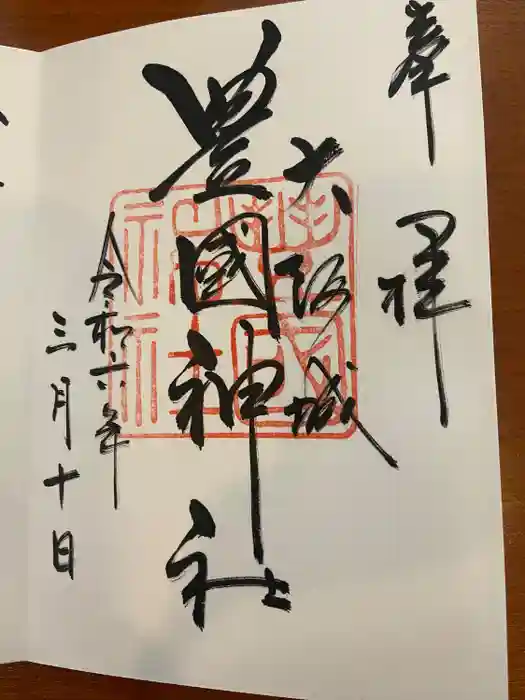 奉拝
大阪城
豊國神社
令和六年
三月十日